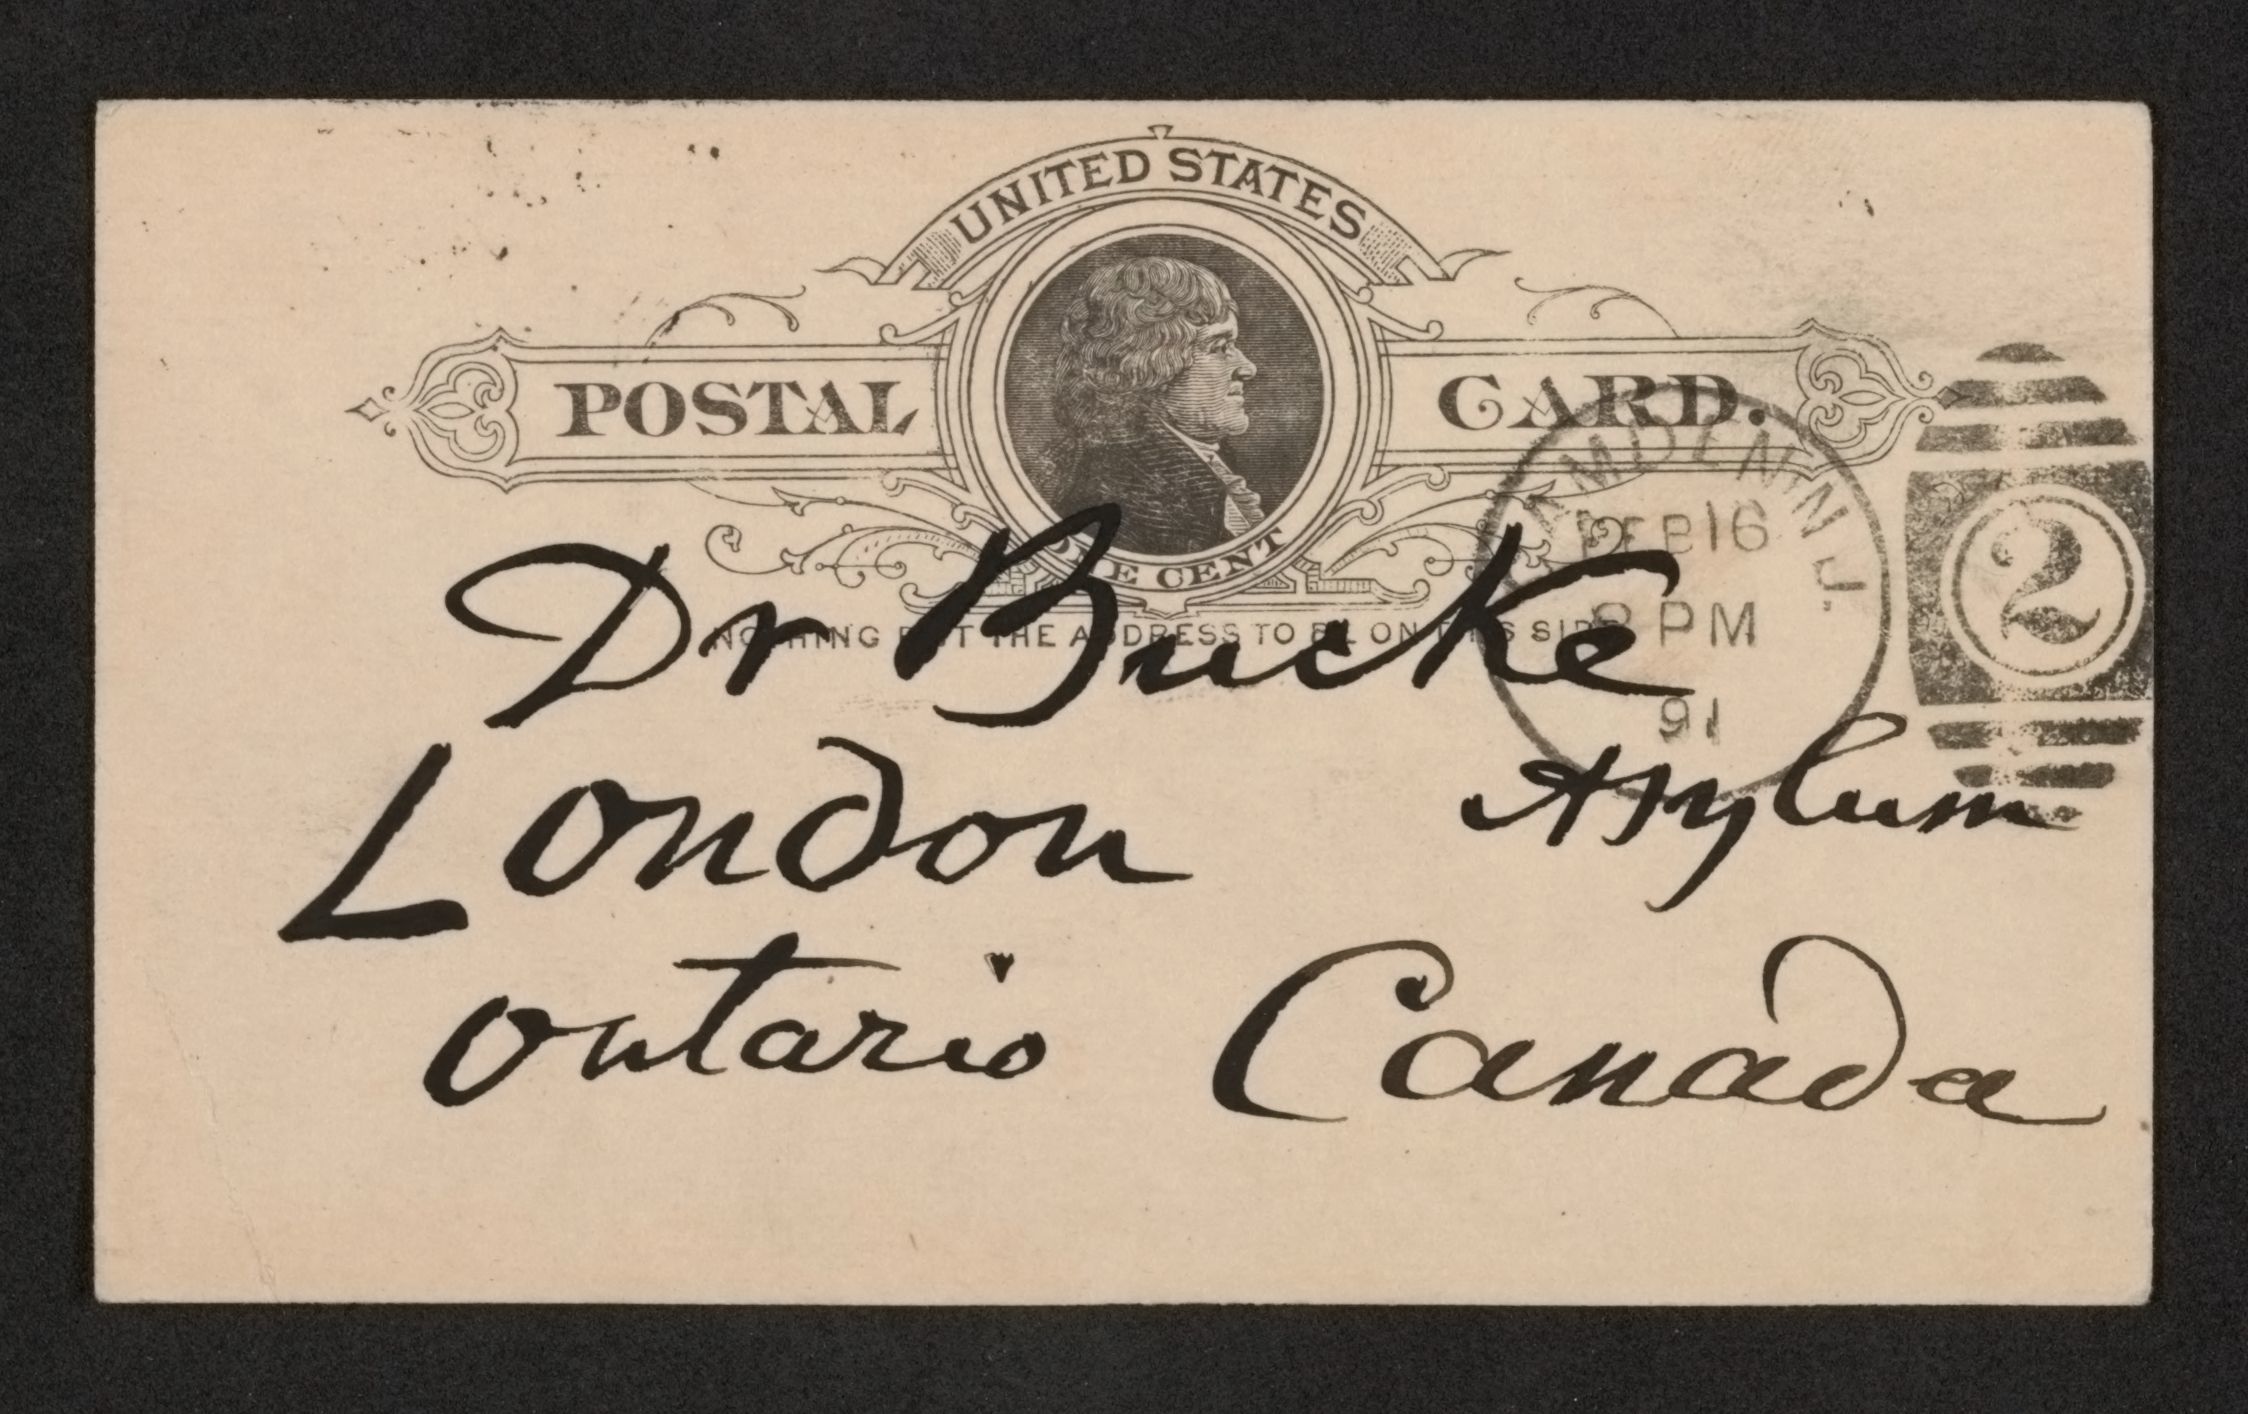 UNITED STATES
POSTAL CARD.
ONE CENT
NOTHING BUT THE ADDRESS TO BE ON THIS SIDE
CAMDEN N.J.
FEB 16
8 PM
91
2
Dr Bucke
London Asylum
Ontario Canada